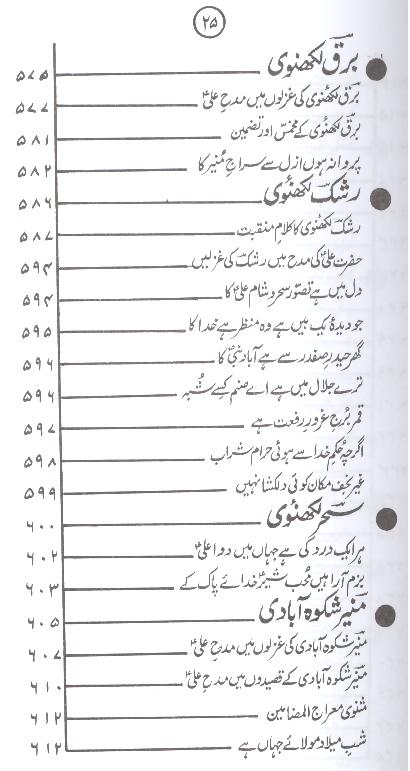 ۲۵
برقؔ لکھنوی ۵۷۵
برقؔ لکھنوی کی غزلوں میں مدحِ علیؑ ۵۷۷
برقؔ لکھنوی کے مخمّس اور تضمین ۵۸۱
پروانہ ہوں ازل سے سراجِ مُنیر کا ۵۸۲
رشکؔ لکھنوی ۵۸۶
رشکؔ لکھنوی کا کلامِ منقبت ۵۸۷
حضرت علیؑ کی مدح میں رشکؔ کی غزلیں ۵۹۴
دل میں ہے تصوّر سحر و شام علیؑ کا ۵۹۴
جو دیدۂ یک بیں ہے وہ منظر ہے خدا کا ۵۹۵
گھر حیدرِ صفدر سے ہے آباد نبیؐ کا ۵۹۶
ترے جلال میں ہے اے صنم کسے شُبہ ۵۹۶
قمر بُرجِ غرورِ رفعت ہے ۵۹۷
اگرچہ حُکمِ خدا سے ہوئی حرام شراب ۵۹۸
غیرِ نجف مکان کوئی دلکشا نہیں ۵۹۹
سحرؔ لکھنوی ۶۰۰
ہر ایک درد کی ہے جہاں میں دوا علیؑ ۶۰۲
بزم آرا ہیں مُحب شیرِ خدائے پاک کے ۶۰۳
منیرؔ شکوہ آبادی ۶۰۵
منیرؔ شکوہ آبادی کی غزلوں میں مدحِ علیؑ ۶۰۷
منیرؔ شکوہ آبادی کے قصیدوں میں مدحِ علیؑ ۶۱۰
مثنوی معراج المضامین ۶۱۲
شبِ میلادِ مولائے جہاں ہے ۶۱۲